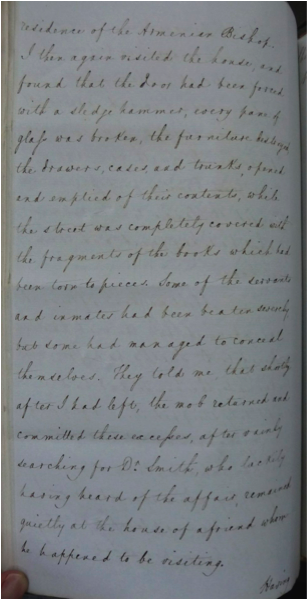 residence of the Armenian Bishop.
I then again visited the house, and
found that the door had been forced
with a sledge hammer, every pane of
glass was broken, the furniture destroyed
the drawers, cases, and trunks, opened
and emptied of their contents, while
the street was completely covered with
the fragments of the books which had
been torn to pieces. Some of the servants
and inmates had been beaten severely
but some had managed to conceal
themselves. They told me that shortly
after I had left, the mob returned and
committed these excesses, after vainly
searching for Dr. Smith, who luckily
having heard of the affair remained
quietly at the house of a friend whom
he happened to be visiting.
Having